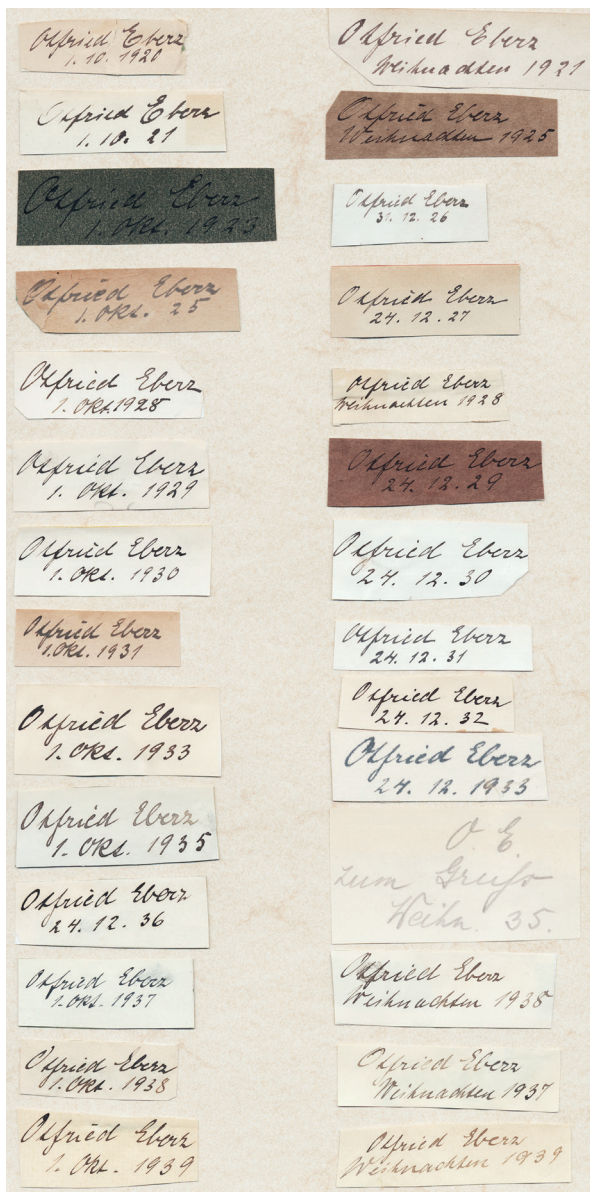 Otfried Eberz
1. 10. 1920
Otfried Eberz
1. 10. 21
Otfried Eberz
1. Okt. 1923
Otfried Eberz
1. Okt. 25
Otfried Eberz
1. Okt. 1928
Otfried Eberz
1. Okt. 1929
Otfried Eberz
1. Okt. 1930
Otfried Eberz
1. Okt. 1931
Otfried Eberz
1. Okt. 1933
Otfried Eberz
1. Okt. 1935
Otfried Eberz
24. 12. 36
Otfried Eberz
1. Okt. 1937
Otfried Eberz
1. Okt. 1938
Otfried Eberz
1. Okt. 1939
Otfried Eberz
Weihnachten 1921
Otfried Eberz
Weihnachten 1925
Otfried Eberz
31. 12. 26
Otfried Eberz
24. 12. 27
Otfried Eberz
Weihnachten 1928
Otfried Eberz
24. 12. 29
Otfried Eberz
24. 12. 30
Otfried Eberz
24. 12. 31
Otfried Eberz
24. 12. 32
Otfried Eberz
24. 12. 1933
O. E
zum
Weihn. 35.
Otfried Eberz
Weihnachten 1938
Otfried Eberz
Weihnachten 1937
Otfried Eberz
Weihnachten 1939